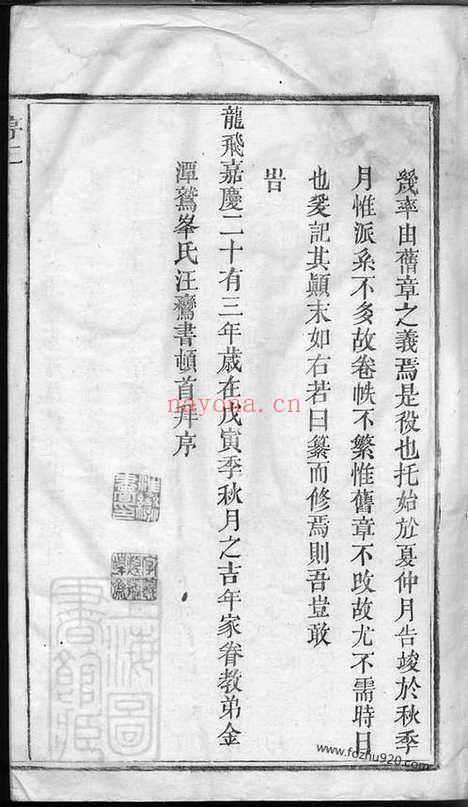 幾率由舊章之義焉是役也托始於夏仲月告竣於秋季
月惟派系不多故卷帙不繁惟舊章不改故尤不需時日
也爰記其顛末如右若曰纂而修焉則吾豈敢
旹
龍飛嘉慶二十有三年歲在戊寅季秋月之吉年家眷教弟金
潭鷲峯氏汪鷟書頓首拜序
序二
上海圖
書館藏
nayona.cn
www.fozhu920.com